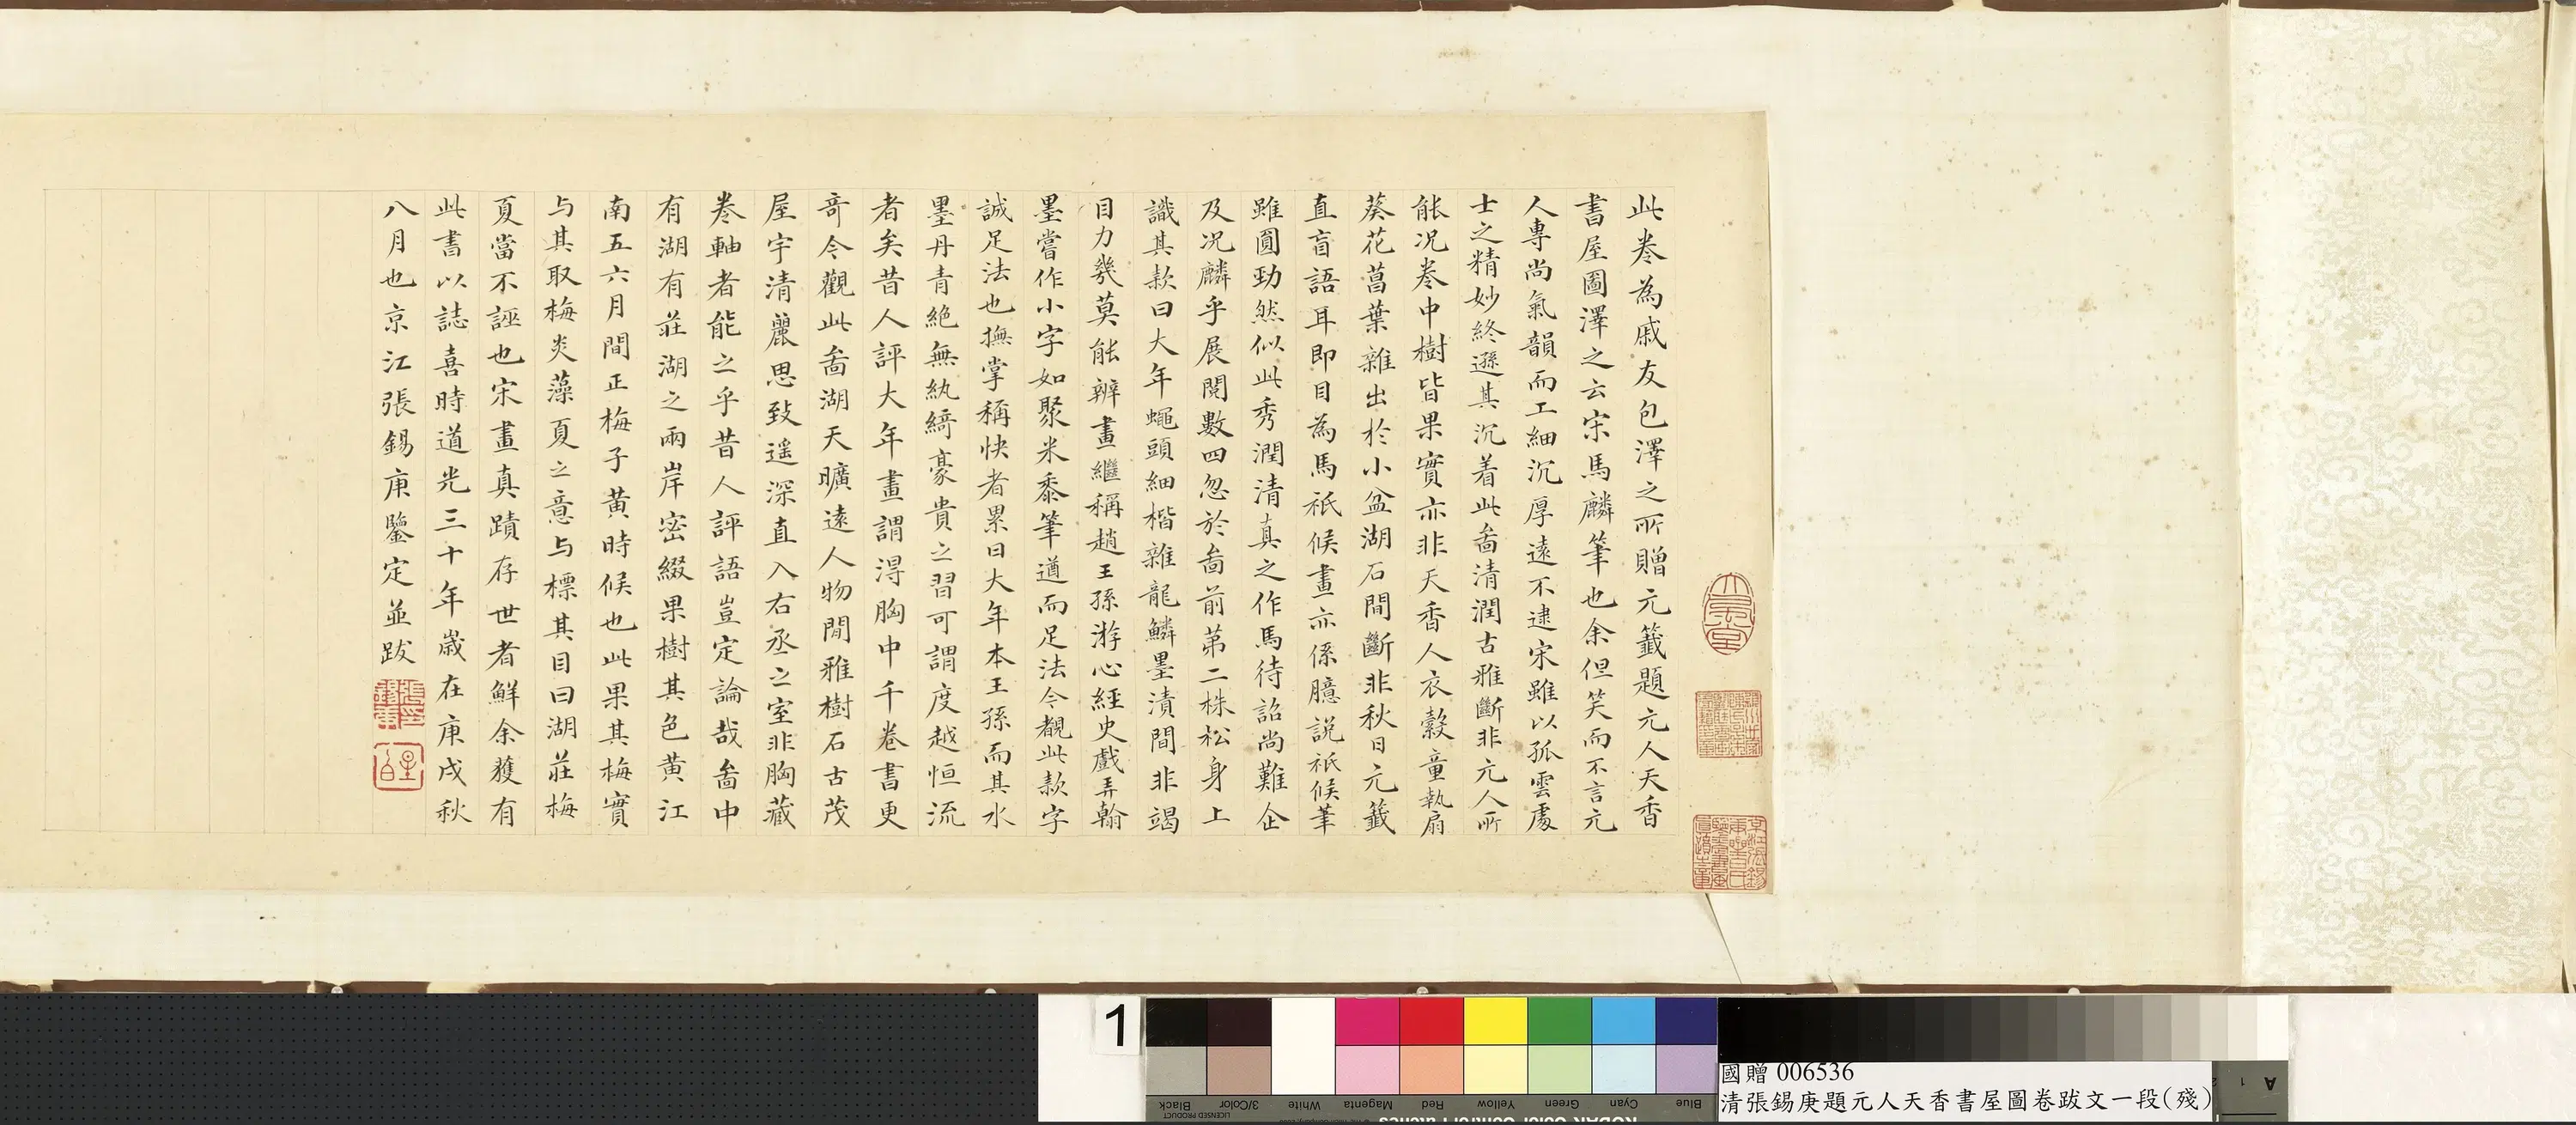 此卷為戚友包澤之所贈元籤題元人天香
書屋圖澤之云宋馬麟筆也余但笑而不言元
人專尚氣韻而工細沉厚遠不逮宋雖以孤雲處
士之精妙終遜其沉着此啚清潤古雅斷非元人所
能況卷中樹皆果實亦非天香人衣縠童執扇
葵花菖葉雜出於小盆湖石間斷非秋日元籤
直盲語耳即目為馬祇候畫亦係臆説祇候筆
雖圓勁然似此秀潤清真之作馬待詔尚難企
及况麟乎展閱數四忽於啚前第二株松身上
識其款曰大年蠅頭細楷雜龍鱗墨漬間非竭
目力幾莫能辨畫繼稱趙王孫游心經史戲弄翰
墨嘗作小字如聚米黍筆遒而足法今觀此款字
誠足法也撫掌稱快者累日大年本王孫而其水
墨丹青絕無紈綺豪貴之習可謂度越恒流
者矣昔人評大年畫謂淂胸中千卷書更
竒今觀此啚湖天曠遠人物閒雅樹石古茂
屋宇清麗思致遥深直入右丞之室非胸藏
卷軸者能之乎昔人評語豈定論哉啚中
有湖有莊湖之兩岸密綴果樹其色黄江
南五六月間正梅子黄時候也此果其梅實
与其取梅炎藻夏之意与標其目曰湖莊梅
夏當不誣也宋畫真蹟存世者鮮余獲有
此書以誌喜時道光三十年嵗在庚戌秋
八月也京江張錫庚鑒定並跋
1
Blue
Cyan
Green
Yellow
Red
Magenta
White
3/Color
Black
國贈 006536
清張錫庚題元人天香書屋圖卷跋文一段(殘)
A